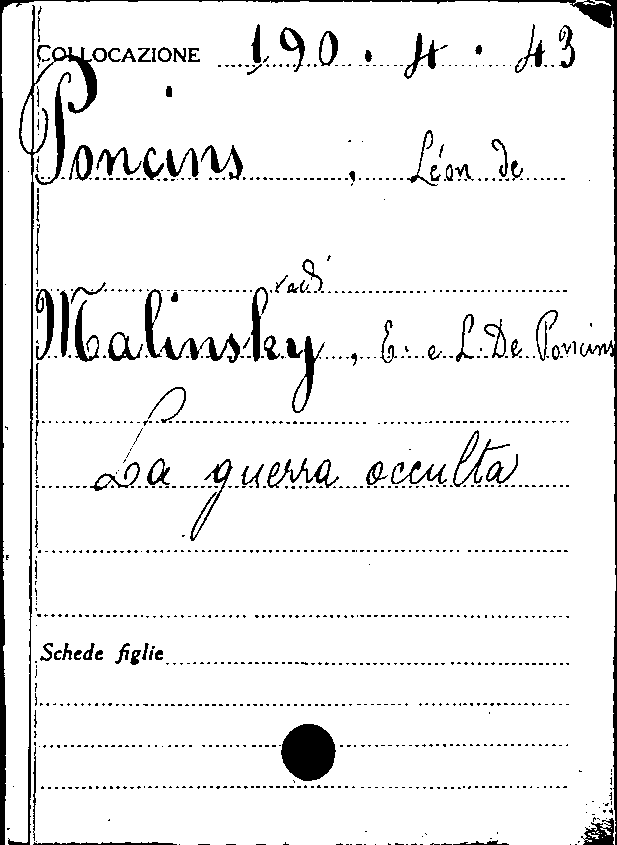 COLLOCAZIONE 190.4.43
Poncins, Léon de
vedi
Malinsky, E. e L. De Poncins
La guerra occulta
Schede figlie